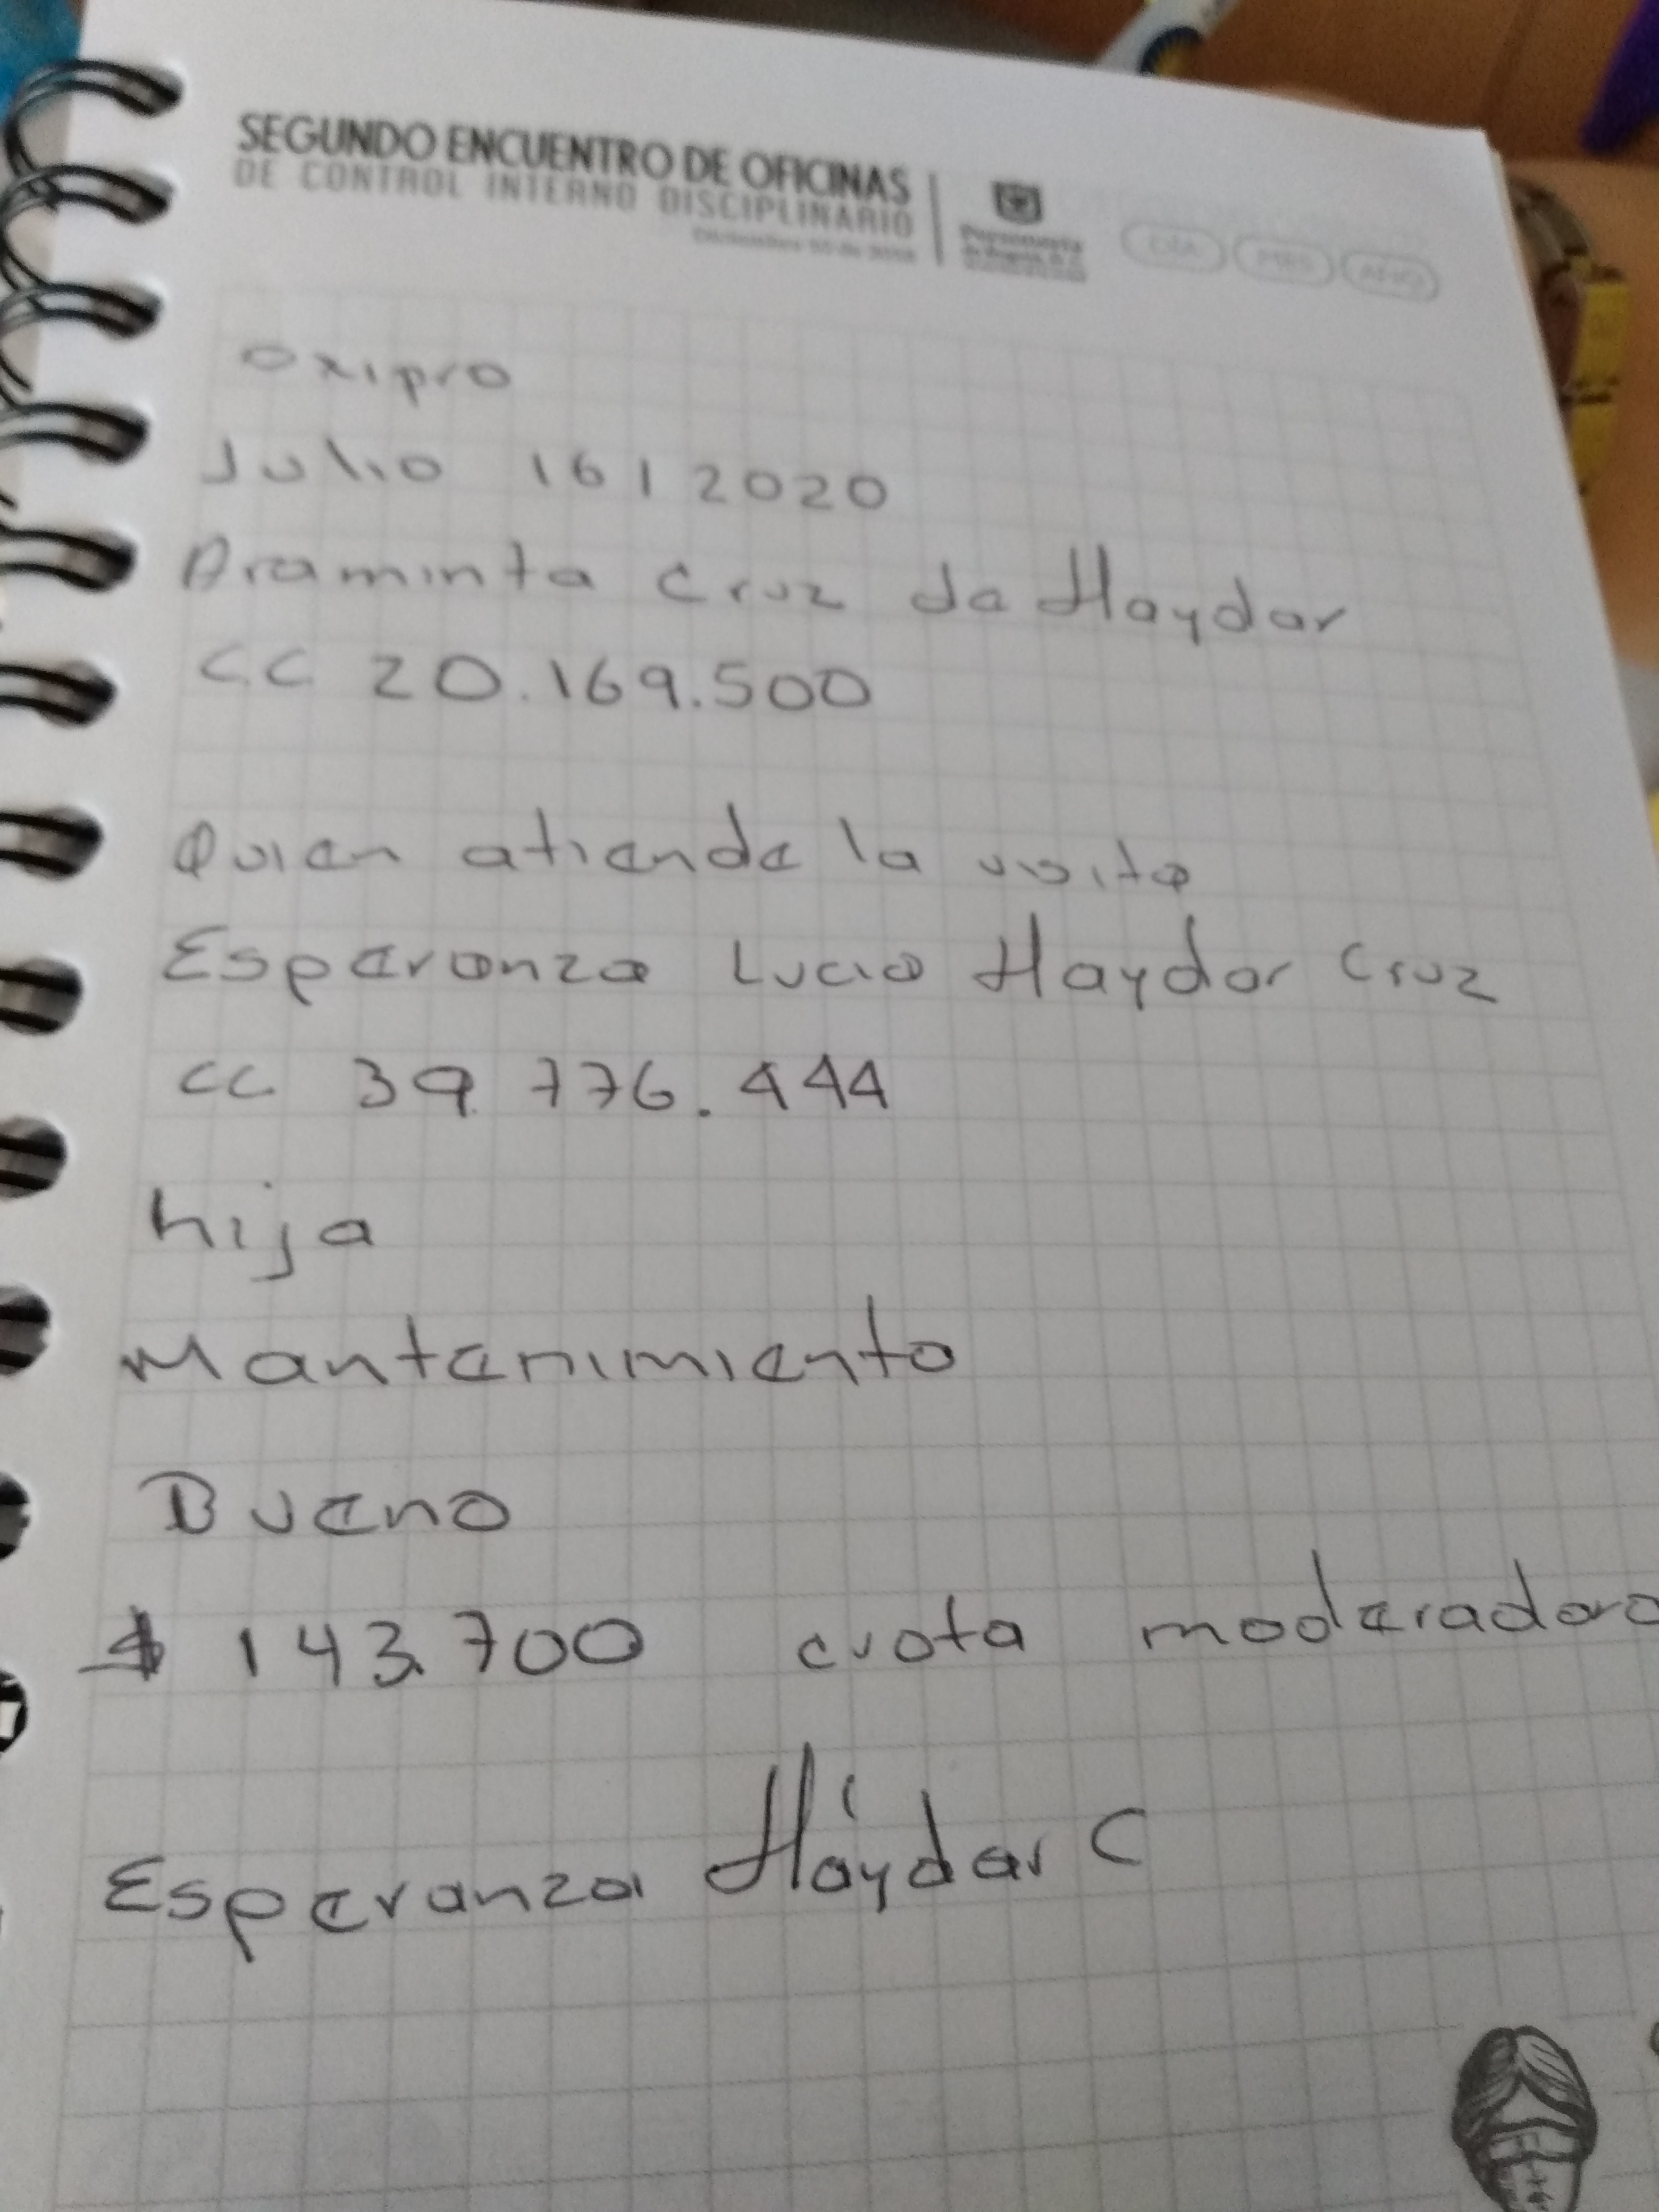 SEGUNDO ENCUENTRO DE OFICINAS
DE CONTROL INTERNO DISCIPLINARIO
Personería
DÍA MES AÑO
oxipro
Julio 16 | 2020
Araminta Cruz de Haydar
CC 20.169.500
Quien atiende la visita
Esperanza Lucia Haydar Cruz
CC 39.776.444
hija
Mantenimiento
Bueno
$ 143.700 cuota moderadora
Esperanza Haydar C